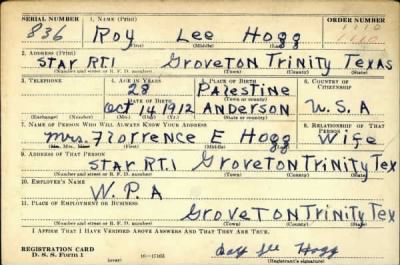 SERIAL NUMBER 1. NAME (Print) ORDER NUMBER
836 Roy Lee Hogg
(First) (Middle) (Last)
2. ADDRESS (Print)
Star RT.1 Groveton Trinity Texas
(Number and street or R. F. D. number) (Town) (County) (State)
3. TELEPHONE 4. AGE IN YEARS 5. PLACE OF BIRTH 6. COUNTRY OF CITIZENSHIP
28 Palestine
DATE OF BIRTH (Town or county)
Oct 14 1912 Anderson U.S.A
(State or country)
7. NAME OF PERSON WHO WILL ALWAYS KNOW YOUR ADDRESS 8. RELATIONSHIP OF THAT PERSON
Mrs. Florrence E Hogg Wife
(First) (Middle) (Last)
9. ADDRESS OF THAT PERSON
Star RT.1 Groveton Trinity Tex
(Number and street or R. F. D. number) (Town) (County) (State)
10. EMPLOYER'S NAME
W.P.A
11. PLACE OF EMPLOYMENT OR BUSINESS
Groveton Trinity Tex
(Number and street or R. F. D. number) (Town) (County) (State)
I AFFIRM THAT I HAVE VERIFIED ABOVE ANSWERS AND THAT THEY ARE TRUE.
REGISTRATION CARD
D. S. S. Form 1 (over) Roy Lee Hogg
(Registrant's signature)